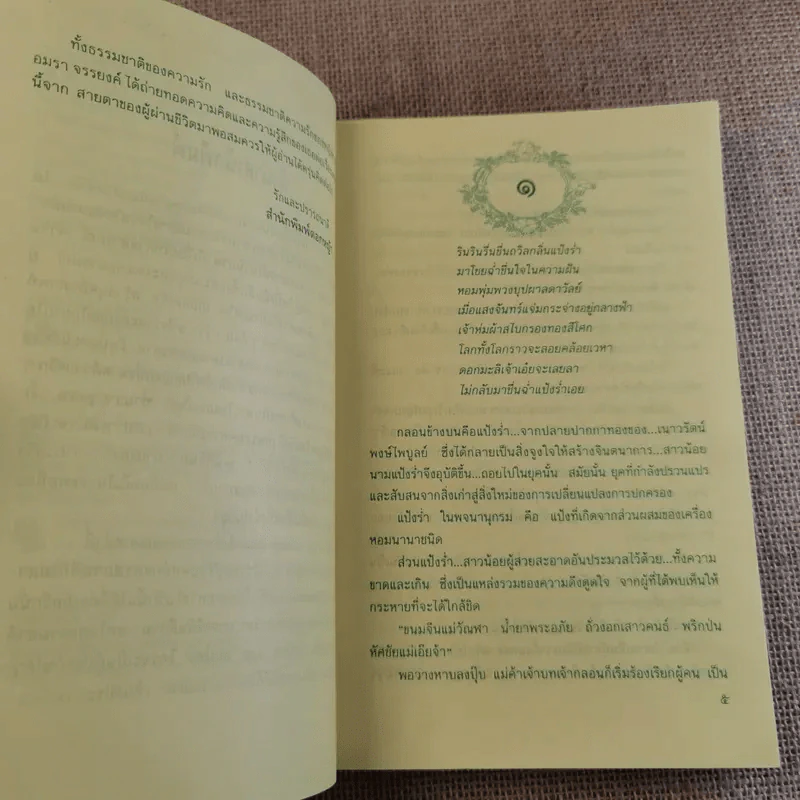 ทั้งธรรมชาติของความรัก และธรรมชาติความรัก
อมรา จรรยงค์ ได้ถ่ายทอดความคิดและความรู้สึกของเธอ
นี้จาก สายตาของผู้ผ่านชีวิตมาพอสมควรให้ผู้อ่านได้
รักและปรารถนาดี
สำนักพิมพ์ดอกหญ้า
๑
รินรินรื่นชื่นถวิลกลิ่นแป้งร่ำ
มาโชยฉ่ำชื่นใจในความฝัน
หอมพุ่มพวงบุปผาลดาวัลย์
เมื่อแสงจันทร์แจ่มกระจ่างอยู่กลางฟ้า
เจ้าห่มผ้าสไบกรองทองสีโศก
โลกทั้งโลกราวจะลอยคล้อยเวหา
ดอกมะลิเจ้าเอ๋ยจะเลยลา
ไม่กลับมาชื่นฉ่ำแป้งร่ำเอย
กลอนข้างบนคือแป้งร่ำ...จากปลายปากกาทองของ...เนาวรัตน์
พงษ์ไพบูลย์ ซึ่งได้กลายเป็นสิ่งจูงใจให้สร้างจินตนาการ...สาวน้อย
นามแป้งร่ำจึงอุบัติขึ้น...ถอยไปในยุคนั้น สมัยนั้น ยุคที่กำลังปรวนแปร
และสับสนจากสิ่งเก่าสู่สิ่งใหม่ของการเปลี่ยนแปลงการปกครอง
แป้งร่ำ ในพจนานุกรม คือ แป้งที่เกิดจากส่วนผสมของเครื่อง
หอมนานาชนิด
ส่วนแป้งร่ำ...สาวน้อยผู้สวยสะอาดอันประมวลไว้ด้วย...ทั้งความ
ขาดและเกิน ซึ่งเป็นแหล่งรวมของความดึงดูดใจ จากผู้ที่ได้พบเห็นให้
กระหายที่จะได้ใกล้ชิด
"ขนมจีนแม่วัณฬา น้ำยาพระอภัย ถั่วงอกเสาวคนธ์ พริกป่น
หัศชัยแม่เอ๊ยจ้า"
พอวางหาบลงปุ๊บ แม่ค้าเจ้าบทเจ้ากลอนก็เริ่มร้องเรียกผู้คน เป็น
๕